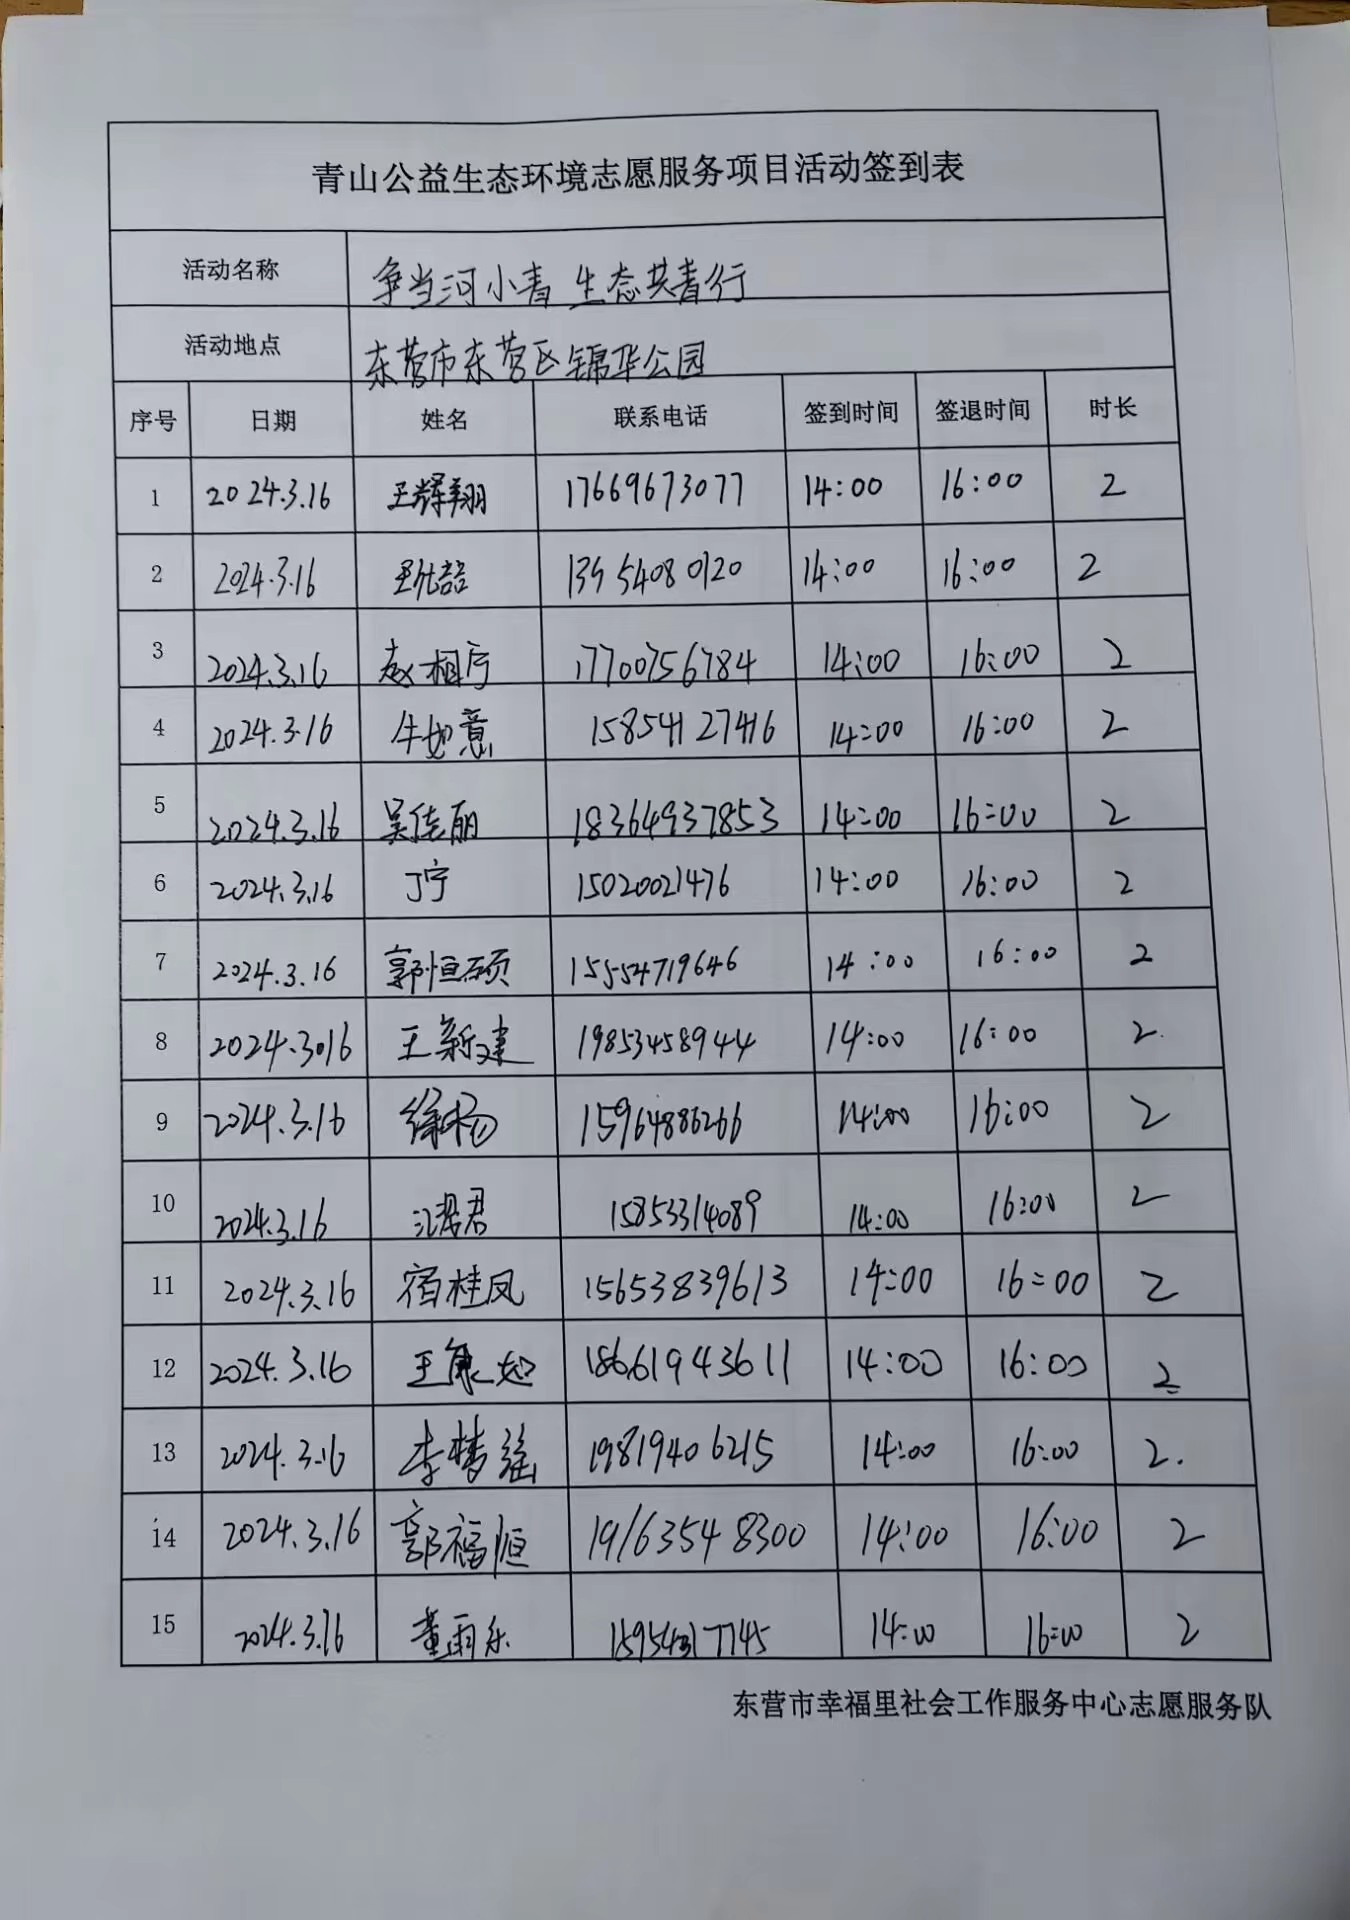 青山公益生态环境志愿服务项目活动签到表
活动名称 争当河小青 生态共青行
活动地点 东营市东营区锦华公园
序号 日期 姓名 联系电话 签到时间 签退时间 时长
1 2024.3.16 王辉翔 17669673077 14:00 16:00 2
2 2024.3.16 14:00 16:00 2
3 2024.3.16 赵相宇 17700756784 14:00 16:00 2
4 2024.3.16 牛如意 15854127416 14:00 16:00 2
5 2024.3.16 吴佳丽 18364937853 14:00 16:00 2
6 2024.3.16 丁宁 15020021476 14:00 16:00 2
7 2024.3.16 郭恒硕 15554719646 14:00 16:00 2
8 2024.3.16 王新建 19853458944 14:00 16:00 2
9 2024.3.16 徐杨 15964886266 14:00 16:00 2
10 2024.3.16 15853314089 14:00 16:00 2
11 2024.3.16 宿桂凤 15653839613 14:00 16:00 2
12 2024.3.16 18661943611 14:00 16:00 2
13 2024.3.16 李梦瑶 19819406215 14:00 16:00 2.
14 2024.3.16 郭福恒 19163548300 14:00 16:00 2
15 2024.3.16 董雨乐 14:00 16:00 2
东营市幸福里社会工作服务中心志愿服务队